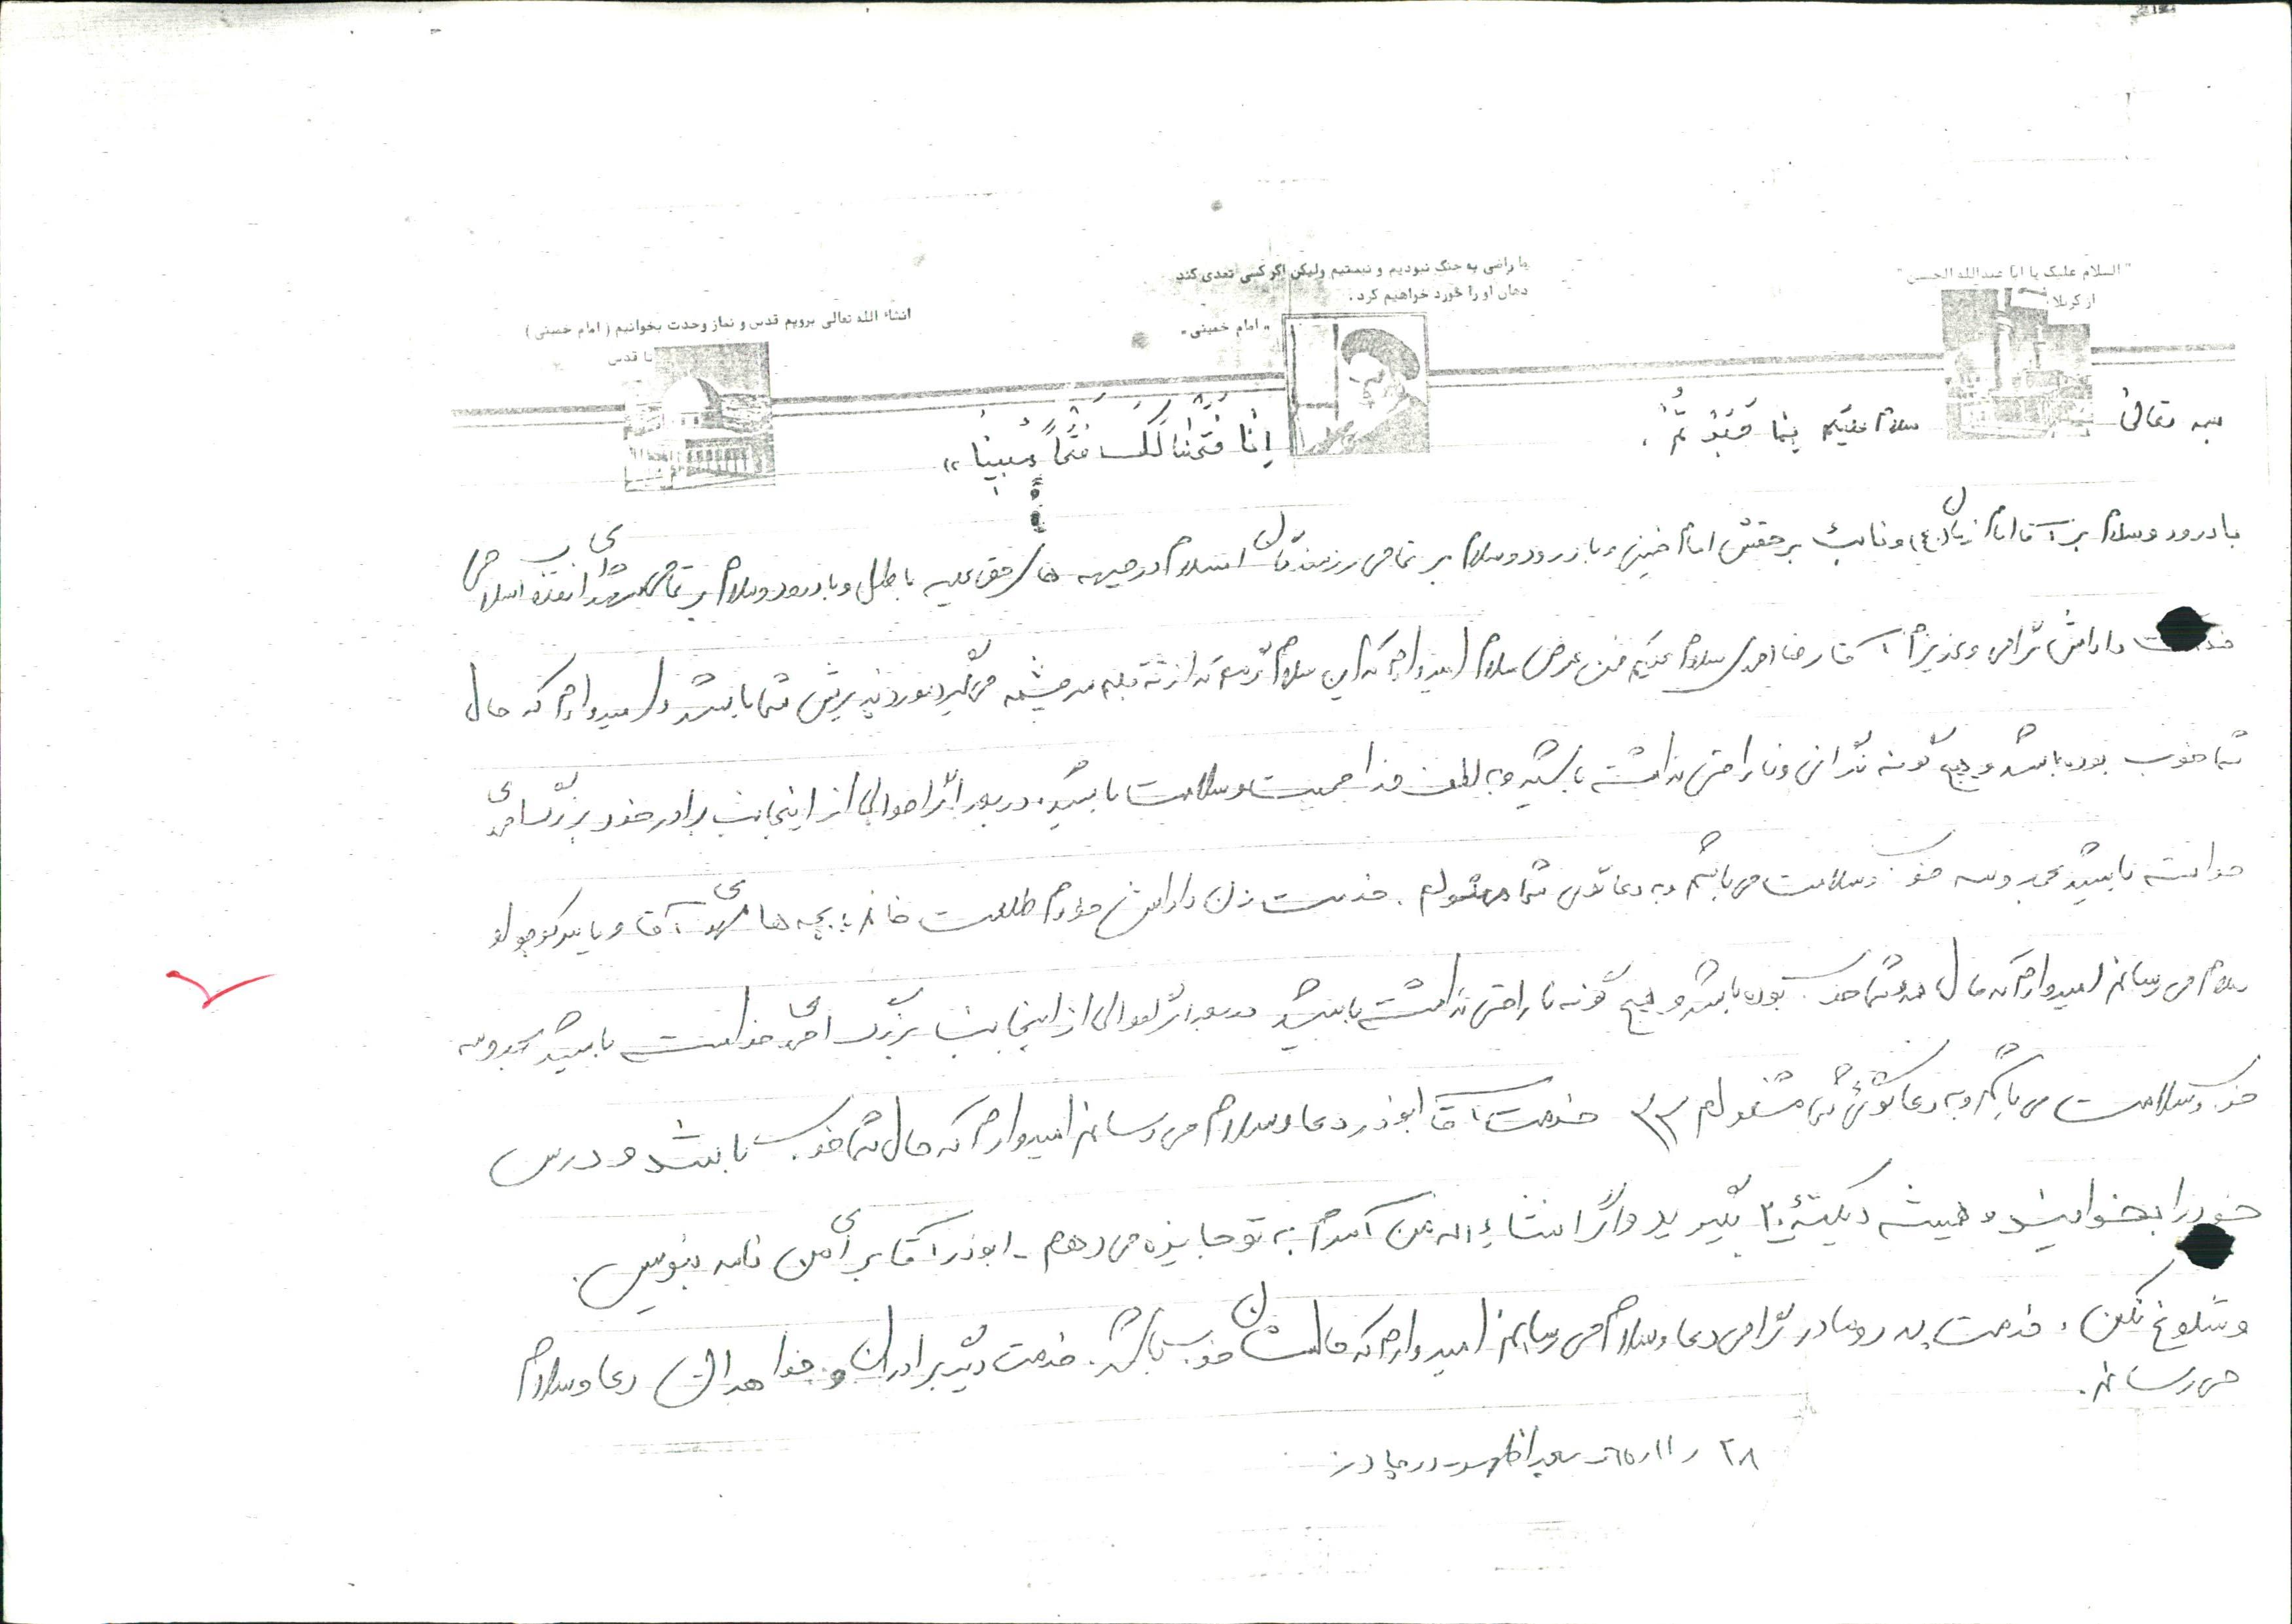 "السلام علیک یا ابا عبدالله الحسین"
از کربلا
ما راضی به جنگ نبودیم و نیستیم ولیکن اگر کسی تعدی کند
دهان او را خورد خواهیم کرد.
«امام خمینی»
انشاء الله تعالی برویم قدس و نماز وحدت بخوانیم (امام خمینی)
تا قدس
بسمه تعالی سلام علیکم بما صَبَرْتُمْ.
اِنّا فَتَحْنا لَکَ فَتْحاً مُبیناً»
با درود و سلام بر آقا امام زمان (عج) و نائب برحقش امام خمینی و با درود و سلام بر تمامی رزمندگان اسلام در جبهه های حق علیه باطل و با درود و سلام بر تمامی شهدای انقلاب اسلامی
خدمت داداش گرامی و عزیزم آقا رضا سلام علیکم ضمن عرض سلام امیدوارم که این سلام گرمم که از ته قلبم سرچشمه می گیرد مورد پذیرش شما باشد و امیدوارم که حال
شما خوب بوده باشد و هیچ گونه نگرانی و ناراحتی نداشته باشید و به لطف خدا صحیح و سلامت باشید. در مورد اگر احوالی از اینجانب برادر خود بزرگ
خواسته باشید بحمدوسه خوب و سلامت می باشم و به دعاگوی شما مشغولم. خدمت زن داداش خودم طلعت خانم؛ بچه ها مهدی آقا و کوچولو
سلام می رسانم امیدوارم که حال همه شما خوب بوده باشد و هیچ گونه ناراحتی نداشته باشید در مورد اگر احوالی از اینجانب بزرگ خواسته باشید بحمدوسه
خوب و سلامت می باشم و به دعا گوئی مشغولم خدمت آقا ابوذر دعا و سلام می رسانم امیدوارم که حال شما خوب باشد و درس
خود را بخوانید و همیشه دیکتهٔ ۲۰ بگیرید و اگر انشاءاله من آمدم به تو جایزه می دهم - ابوذر آقا برای من نامه بنویس.
و شلوغ نکن. خدمت پدر و مادر گرامی دعا و سلام می رسانم امیدوارم که حالشان خوب باشد. خدمت دیگر برادران و خواهران دعا و سلام
می رسانم.
۲۸ ر ۱۱ ر ۶۵ - بعد از ظهر - در چادر